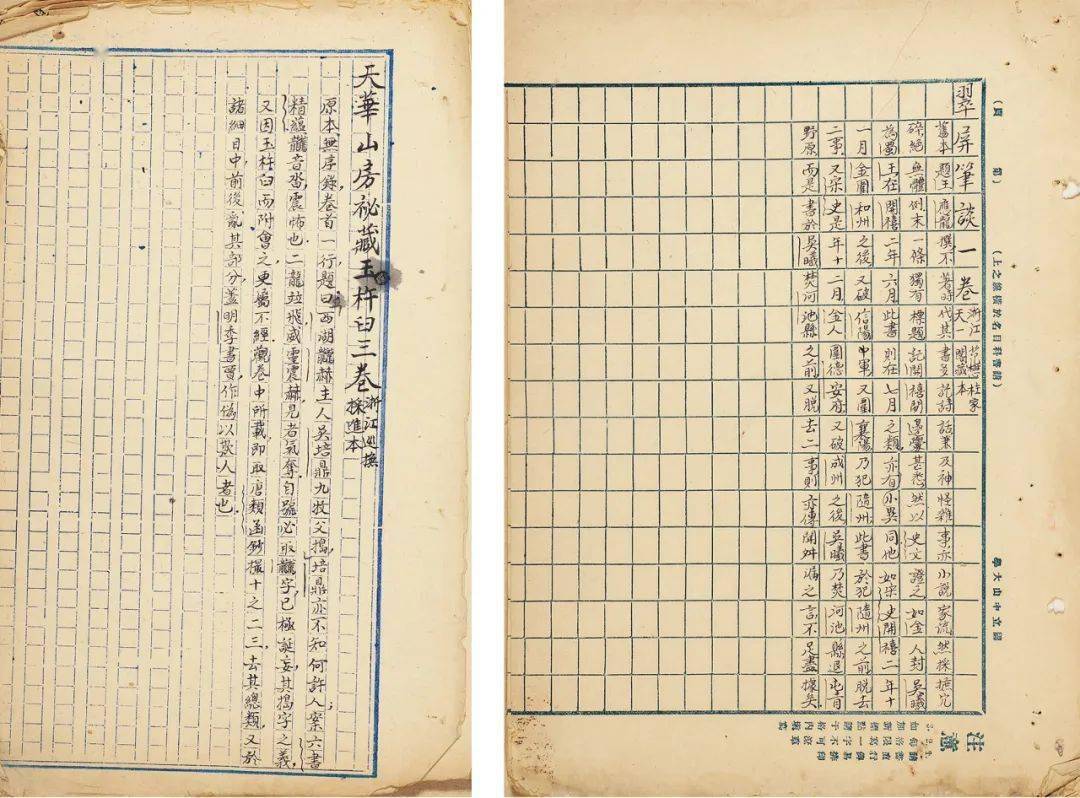 天華山房祕藏玉杵臼三卷 浙江巡撫
採進本
原本無序錄，卷首一行題曰西湖龖赫主人吳培鼎九牧父搗，培鼎亦不知何許人，案六書
精蘊龖音沓，震怖也，二龍竝飛，威靈震赫，見者氣奪，自號必取龖字，已極誕妄，其搗字之義，
又因玉杵臼而附會之，更屬不經，觀卷中所載，即取唐類函鈔撮十之二三，去其總類，又於
諸細目中前後亂其部分，蓋明季書賈作偽以欺人者也
翠屏筆談一卷 浙江范懋柱家
天一閣藏本
舊本題王應龍撰不著時代其書多記詩話兼及神怪雜事亦小說家流然採摭冗
碎絕無體例末一條獨有標題記開禧開邊釁甚悉然以史文證之如金人封吳曦
為蜀王在開禧二年六月此書則在七月之類亦有小異同他如宋史開禧二年十
一月金圍和州之後又破信陽中軍又圍襄陽乃犯隨州此書於犯隨州之前脫去
二事又宋史是年十二月金人圍德安府又破成州之後吳曦乃焚河池縣退屯青
野原而是書於吳曦焚河池縣之前又脫去二事則亦傳聞舛漏之言不足盡據矣
(頁 第)
學大山中立國
注意